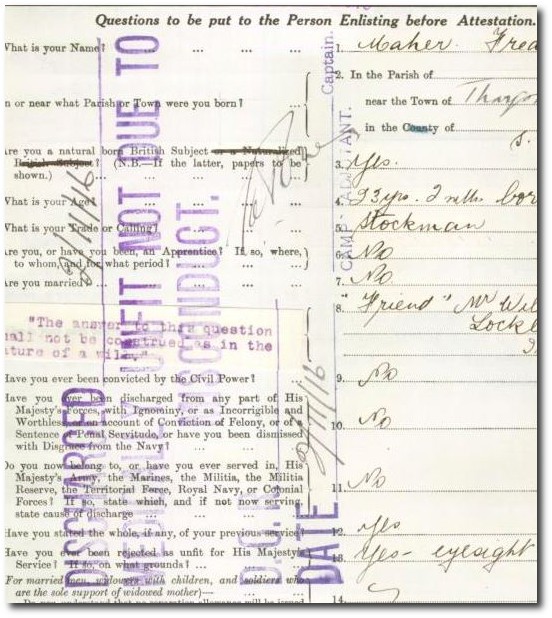 Questions to be put to the Person Enlisting before Attestation.
What is your Name? ... ... ... 1. Maher. Fred
2. In the Parish of
n or near what Parish or Town were you born? ... near the Town of
in the County of
Are you a natural born British Subject or a Naturalized
British Subject? (N.B.—If the latter, papers to be
shown.) ... ... 3. Yes.
What is your Age? ... ... 4. 23 yrs. 2 mths. bor
What is your Trade or Calling? ... 5. Stockman
Are you, or have you been, an Apprentice? If so, where,
to whom, and for what period? ... 6. No
Are you married? ... 7. No
"The answer to this question
hall not be construed as in the
ature of a will."
8. "Friend" Mr Wil
Have you ever been convicted by the Civil Power? ... 9. No
Have you ever been discharged from any part of His
Majesty's Forces, with Ignominy, or as Incorrigible and
Worthless, or on account of Conviction of Felony, or of a
Sentence of Penal Servitude, or have you been dismissed
with Disgrace from the Navy? ... 10. No
Do you now belong to, or have you ever served in, His
Majesty's Army, the Marines, the Militia, the Militia
Reserve, the Territorial Force, Royal Navy, or Colonial
Forces? If so, state which, and if not now serving,
state cause of discharge ... 11. No
Have you stated the whole, if any, of your previous service? 12. Yes
Have you ever been rejected as unfit for His Majesty's
Service? If so, on what grounds? ... 13. Yes - eyesight
(For married men, widowers with children, and soldiers who
are the sole support of widowed mother)—
14.
DISCHARGED
MEDICALLY UNFIT NOT DUE TO
MISCONDUCT.
DATE
CAMP ADJUTANT.
Captain.